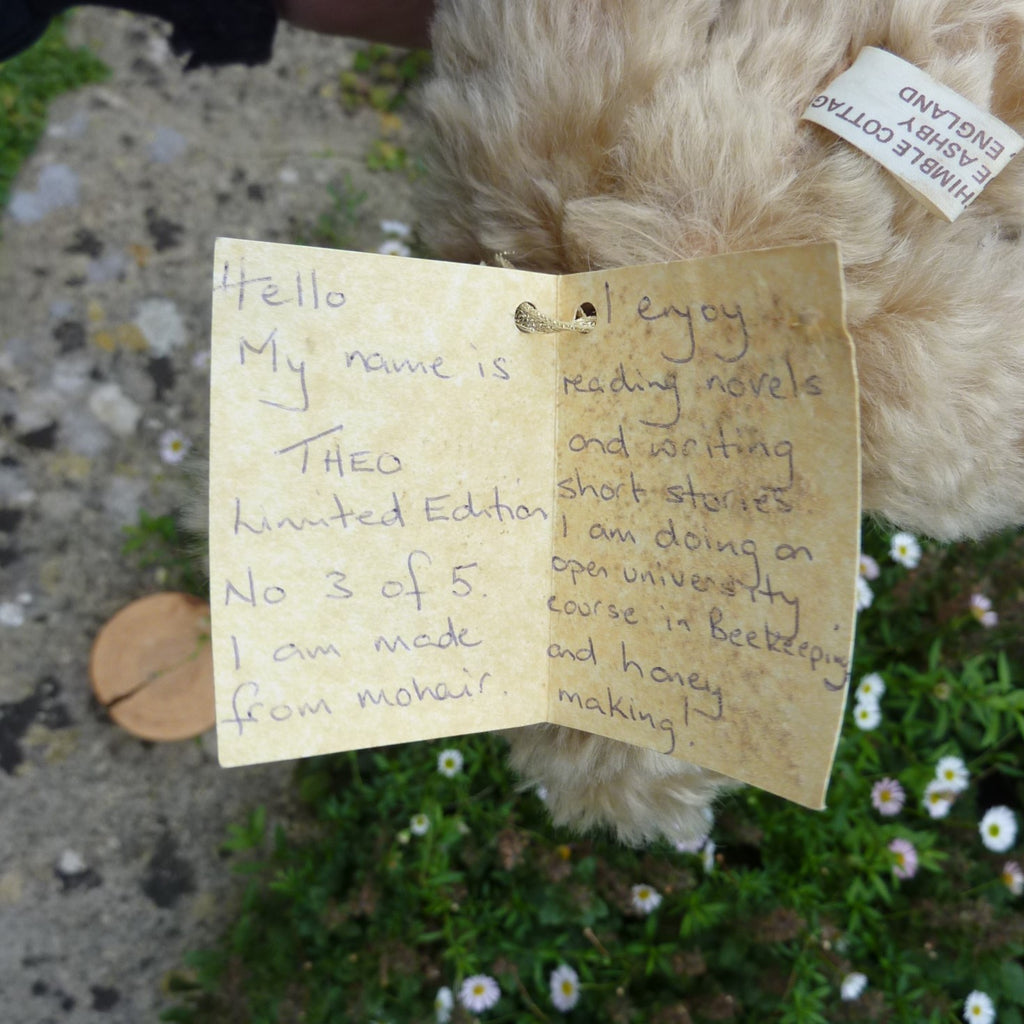 Hello
My name is
THEO
Limited Edition
No 3 of 5.
I am made
from mohair.
I enjoy
reading novels
and writing
short stories
I am doing an
open university
course in Beekeeping
and honey
making!
HIMBLE COTTAG
E ASHBY
ENGLAND